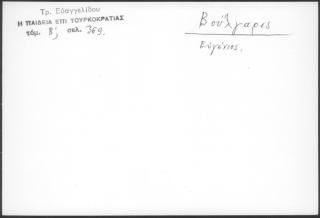 Τρ. Εὐαγγελίδου
Η ΠΑΙΔΕΙΑ ΕΠΙ ΤΟΥΡΚΟΚΡΑΤΙΑΣ
τόμ. Β', σελ. 369.
Βούλγαρις
Εὐγένιος.